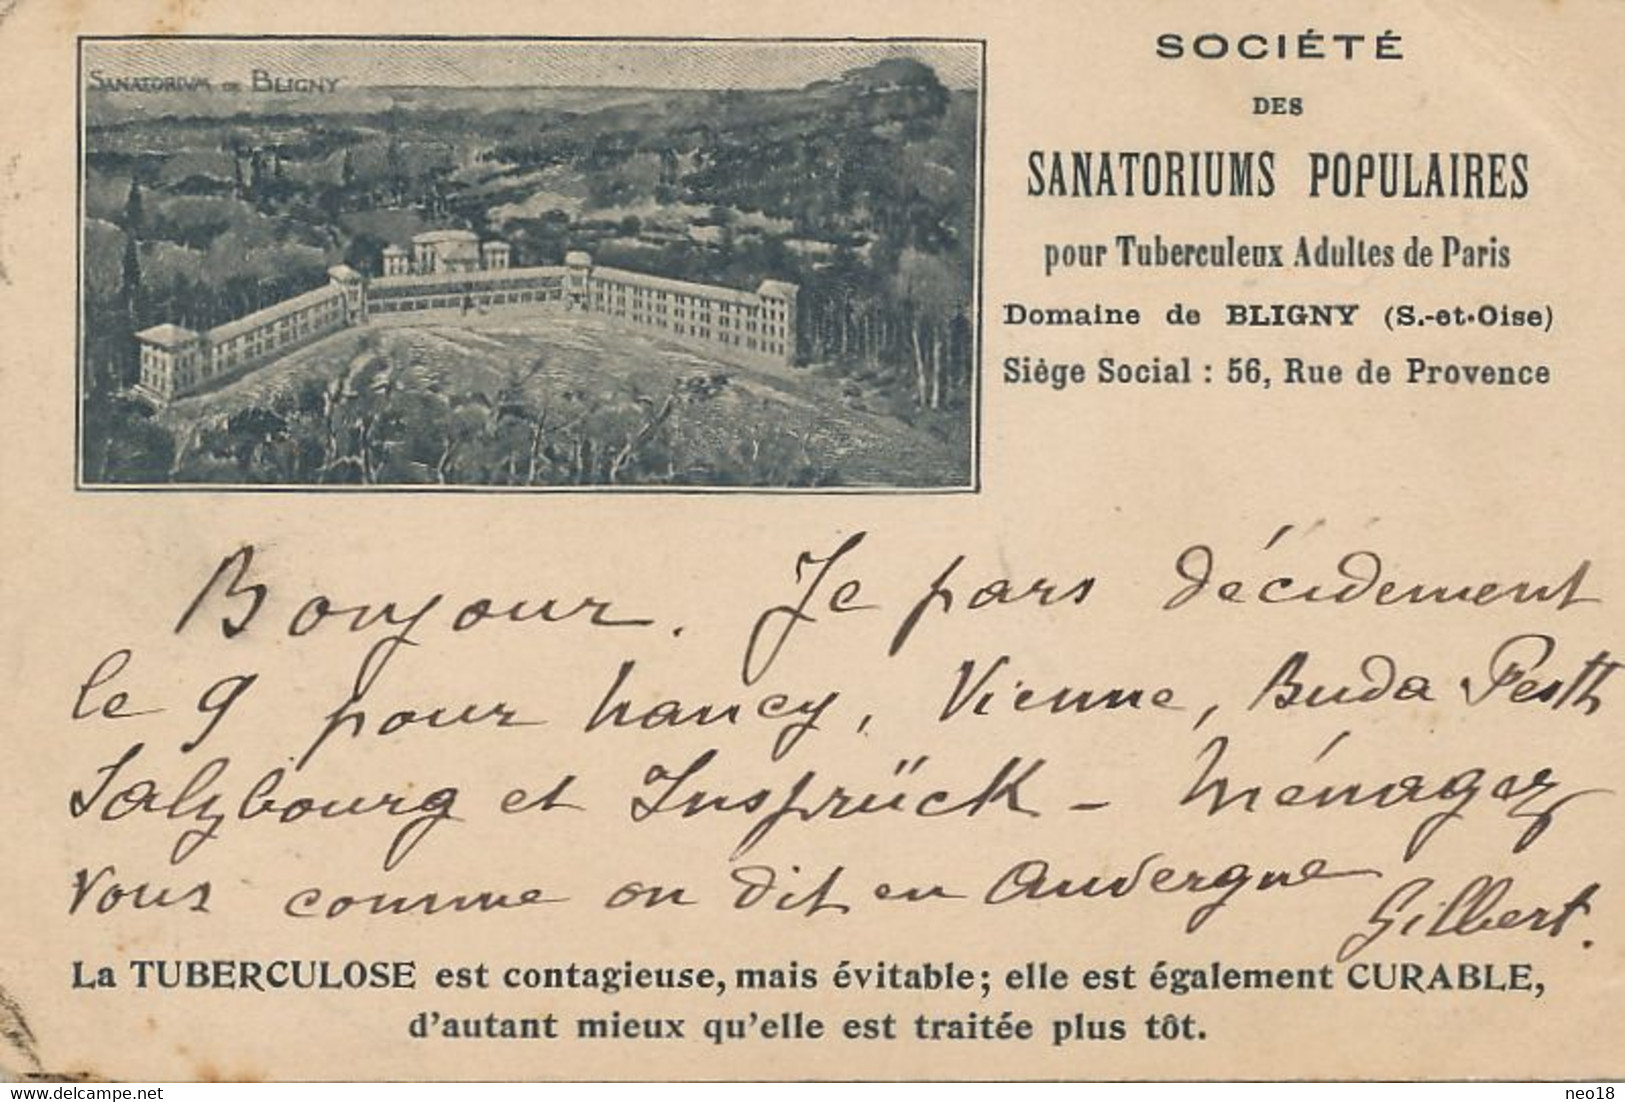 SANATORIUM DE BLIGNY
SOCIÉTÉ
DES
SANATORIUMS POPULAIRES
pour Tuberculeux Adultes de Paris
Domaine de BLIGNY (S.-et-Oise)
Siège Social : 56, Rue de Provence
Bonjour. Je pars décidément
le 9 pour Nancy, Vienne, Buda Pesth
Salzbourg et Insprück - Ménagez
vous comme on dit en Auvergne
Gilbert.
La TUBERCULOSE est contagieuse, mais évitable; elle est également CURABLE,
d'autant mieux qu'elle est traitée plus tôt.
neo18